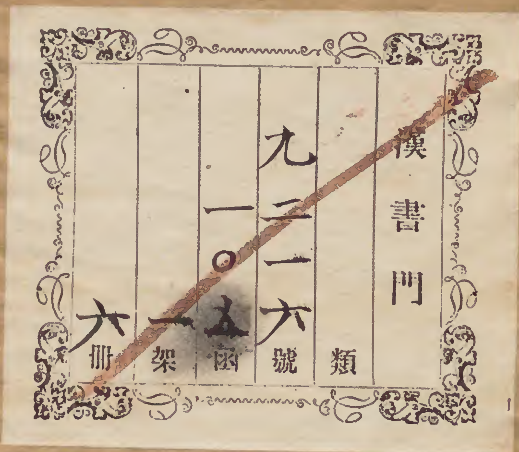 漢書門
類
九二一六號
一〇五函
一架
六冊